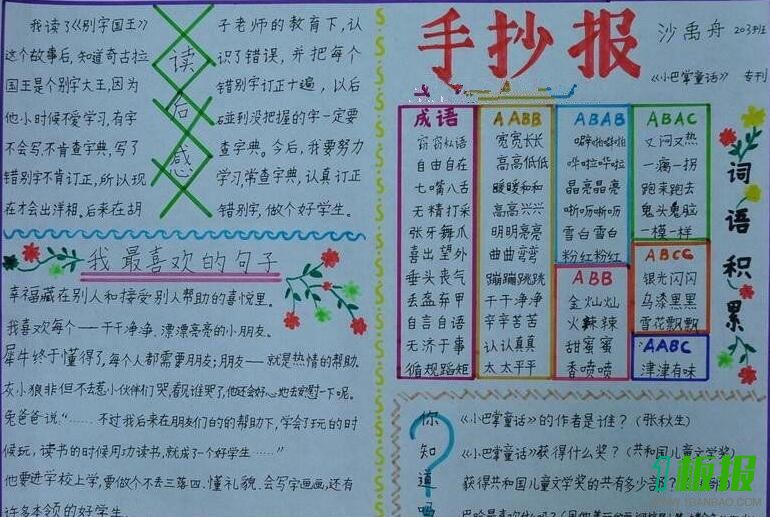 手抄报
沙禹舟 203班
《小巴掌童话》 专刊
读后感
我读了《别字国王》
这个故事后，知道奇古拉
国王是个别字大王，因为
他小时候不爱学习，有字
不会写，不肯查字典，写了
错别字不肯订正，所以现
在才会出洋相。后来在胡
子老师的教育下，认
识了错误，并把每个
错别字订正十遍，以后
碰到没把握的字一定要
查字典。今后，我要努力
学习，常查字典，认真订正
错别字，做个好学生。
我最喜欢的句子
幸福藏在别人和接受别人帮助的喜悦里。
我喜欢每个——干干净净、漂漂亮亮的小朋友。
犀牛终于懂得了，每个人都需要朋友；朋友——就是热情的帮助。
灰小狼非但不去惹小伙伴们哭，看见谁哭了，他还会好心地去安慰一下呢。
兔爸爸说“……不过我后来在朋友们的的帮助下，学会了玩的时
候玩，读书的时候用功读书，就成了一个好学生……”
他要进学校上学，要做个不丢三落四、懂礼貌、会写字画画，还有
许多本领的好学生。
词语积累
成语
窃窃私语
自由自在
七嘴八舌
无精打采
张牙舞爪
喜出望外
垂头丧气
丢盔弃甲
自言自语
无济于事
循规蹈矩
AABB
宽宽长长
高高低低
暖暖和和
高高兴兴
明明亮亮
曲曲弯弯
蹦蹦跳跳
干干净净
辛辛苦苦
认认真真
太太平平
ABAB
噼啪噼啪
哗啦哗啦
晶亮晶亮
唏呖唏呖
雪白雪白
粉红粉红
ABB
金灿灿
火辣辣
甜蜜蜜
香喷喷
ABAC
又闷又热
一瘸一拐
跑来跑去
鬼头鬼脑
一模一样
ABCC
银光闪闪
乌漆黑黑
雪花飘飘
AABC
津津有味
你知道吗？
《小巴掌童话》的作者是谁？（张秋生）
《小巴掌童话》获得什么奖？（共和国儿童文学奖）
获得共和国儿童文学奖的共有多少部？
板报